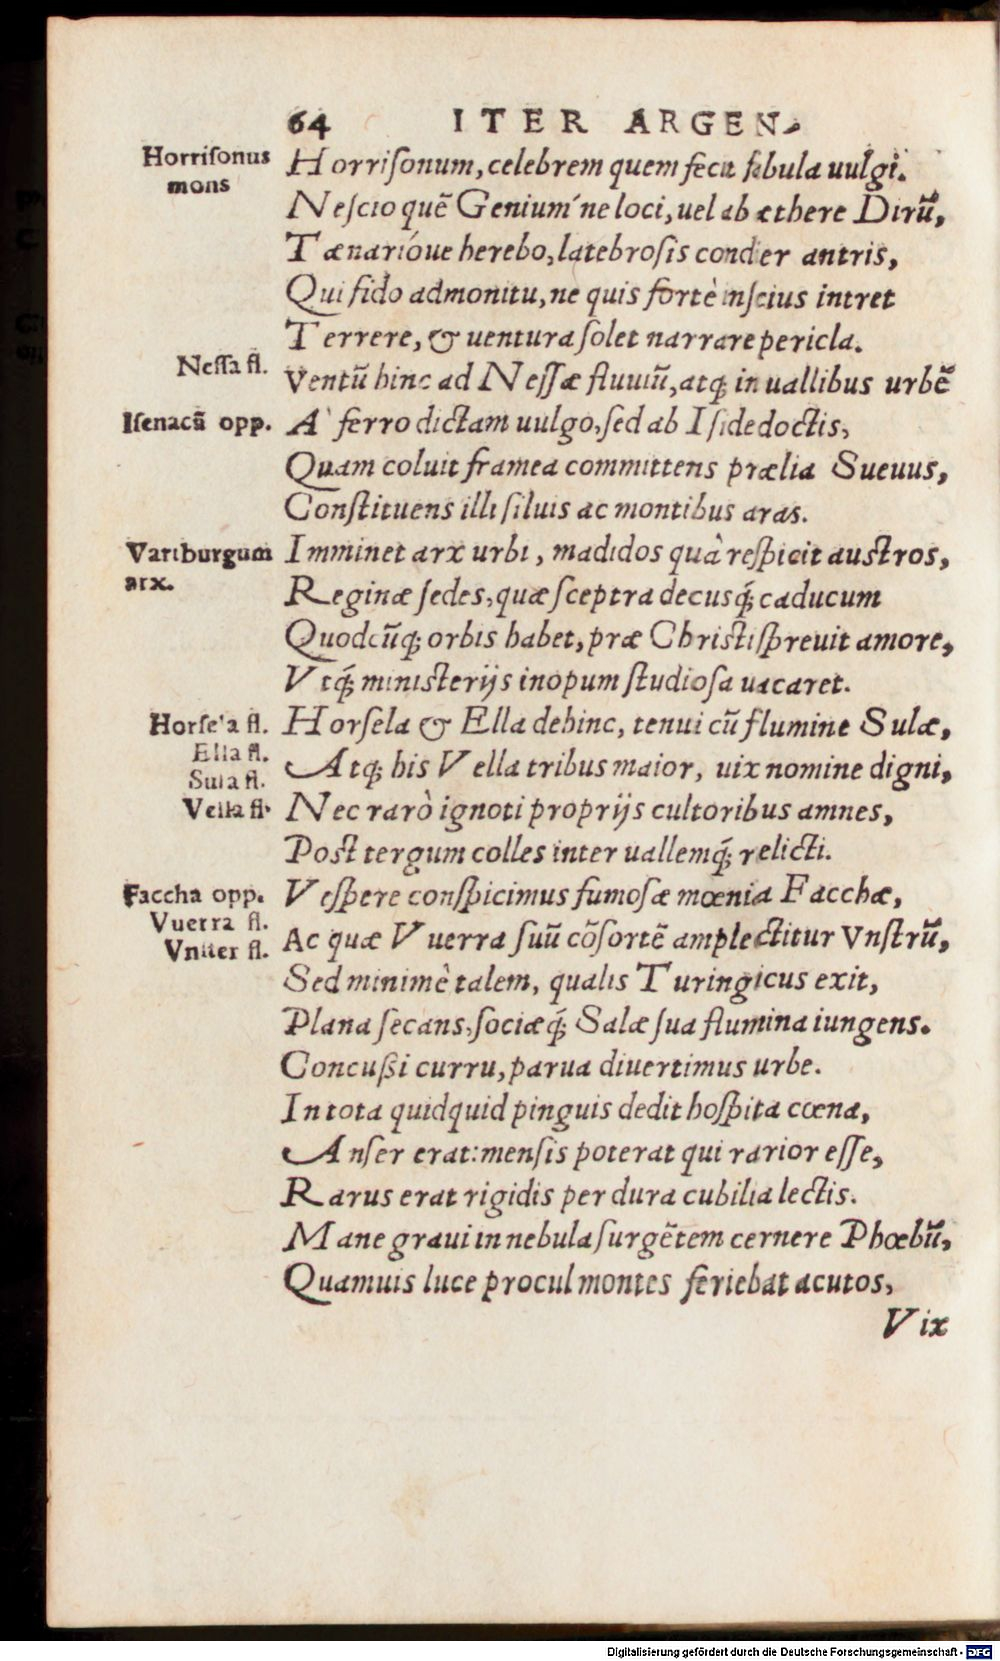 64 ITER ARGEN-
Horriſonus
mons
Horriſonum, celebrem quem fecit fabula uulgi.
Neſcio quē Genium´ne loci, uel ab æthere Dirū,
Tænarióue herebo, latebroſis condier antris,
Qui fido admonitu, ne quis fortè inſcius intret
Terrere, & uentura ſolet narrare pericla.
Neſſa fl.
Ventū hinc ad Neſſæ fluuiū, atq́; in uallibus urbē
Iſenacū opp.
A` ferro dictam uulgo, ſed ab Iſide doctis,
Quam coluit framea committens prælia Sueuus,
Conſtituens illi ſiluis ac montibus aras.
Vartburgum
arx.
Imminet arx urbi, madidos quà reſpicit auſtros,
Reginæ ſedes, quæ ſceptra decusq́; caducum
Quodcūq; orbis habet, præ Chriſti ſpreuit amore,
Vtq́; miniſterijs inopum ſtudioſa uacaret.
Horſela fl.
Ella fl.
Sula fl.
Vella fl.
Horſela & Ella dehinc, tenui cū flumine Sulæ,
Atq; his Vella tribus maior, uix nomine digni,
Nec rarò ignoti proprijs cultoribus amnes,
Poſt tergum colles inter uallemq́; relicti.
Faccha opp.
Vuerra fl.
Vnſter fl.
Veſpere conſpicimus fumoſæ mœnia Facchæ,
Ac quæ Vuerra ſuū cōſortē amplectitur Vnſtrū,
Sed minimè talem, qualis Turingicus exit,
Plana ſecans, ſociæq́; Salæ ſua flumina iungens.
Concußi curru, parua diuertimus urbe.
In tota quidquid pinguis dedit hoſpita cœna,
Anſer erat: menſis poterat qui rarior eſſe,
Rarus erat rigidis per dura cubilia lectis.
Mane graui in nebula ſurgētem cernere Phœbū,
Quamuis luce procul montes feriebat acutos,
Vix
Digitalisierung gefördert durch die Deutsche Forschungsgemeinschaft - DFG